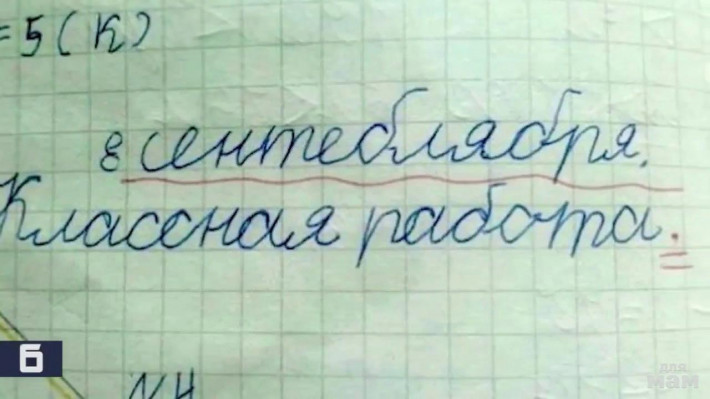 =5 (К)
8 сентеблябра.
Классная работа.
N4
Б
для
мам